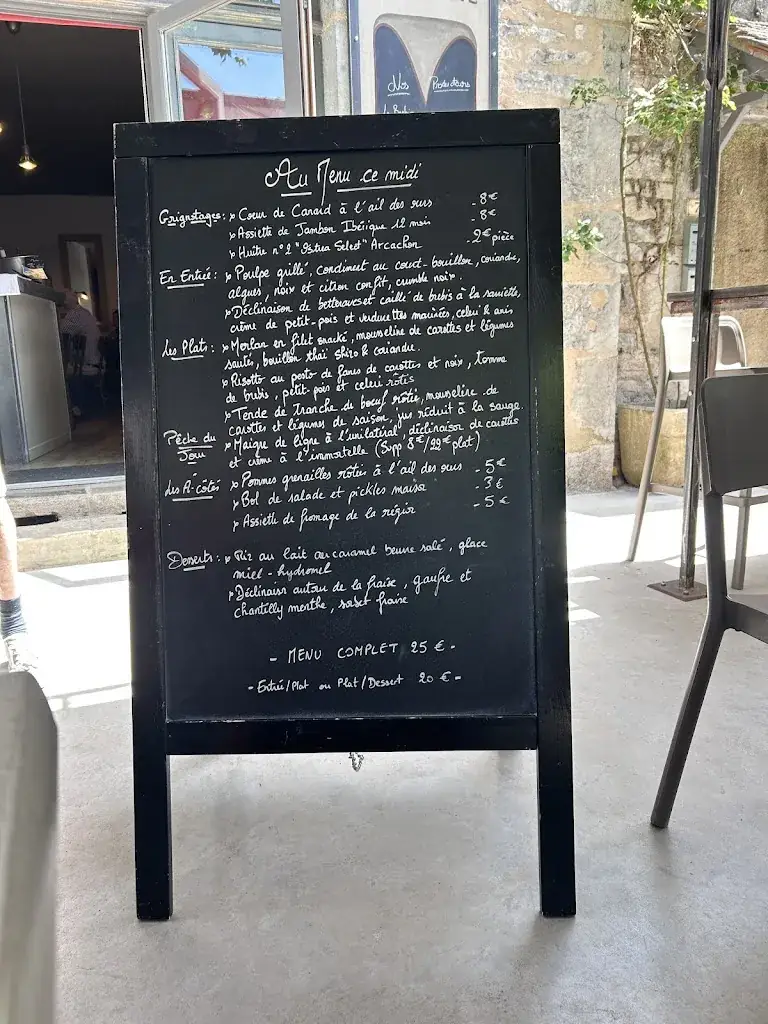 Nos Producteurs
Au Menu ce midi
Grignotages : » Coeur de Canard à l'ail des ours - 8€
» Assiette de Jambon Ibérique 12 mois - 8€
» Huître n°2 "Ostrea Select" Arcachon - 2€ pièce
En Entrée : » Poulpe grillé, condiment au court-bouillon, coriandre,
algues, noix et citron confit, crumble noix.
» Déclinaison de betteraves et caillé de brebis à la sarriette,
crème de petit-pois et verdurettes marinées, celeri & anis
Les Plats : » Merlan en filet snacké, mousseline de carottes et légumes
sautés, bouillon thaï shiro & coriandre.
» Risotto au pesto de fanes de carottes et noix, tomme
de brebis, petit-pois et celeri rôtis
» Tende de Tranche de boeuf rôtie, mousseline de
carottes et légumes de saison, jus réduit à la sauge.
Pêche du » Maigre de ligne à l'unilatéral, déclinaison de carottes
Jour et crème à l'immortelle (Supp 8€/22€ plat)
Les A-côtés » Pommes grenailles rôties à l'ail des ours - 5€
» Bol de salade et pickles maison - 3€
» Assiette de fromage de la région - 5€
Desserts : » Riz au lait au caramel beurre salé, glace
miel - hydromel
» Déclinaison autour de la fraise, gaufre et
chantilly menthe, sorbet fraise
- MENU COMPLET 25 € -
- Entrée/Plat ou Plat/Dessert 20 € -